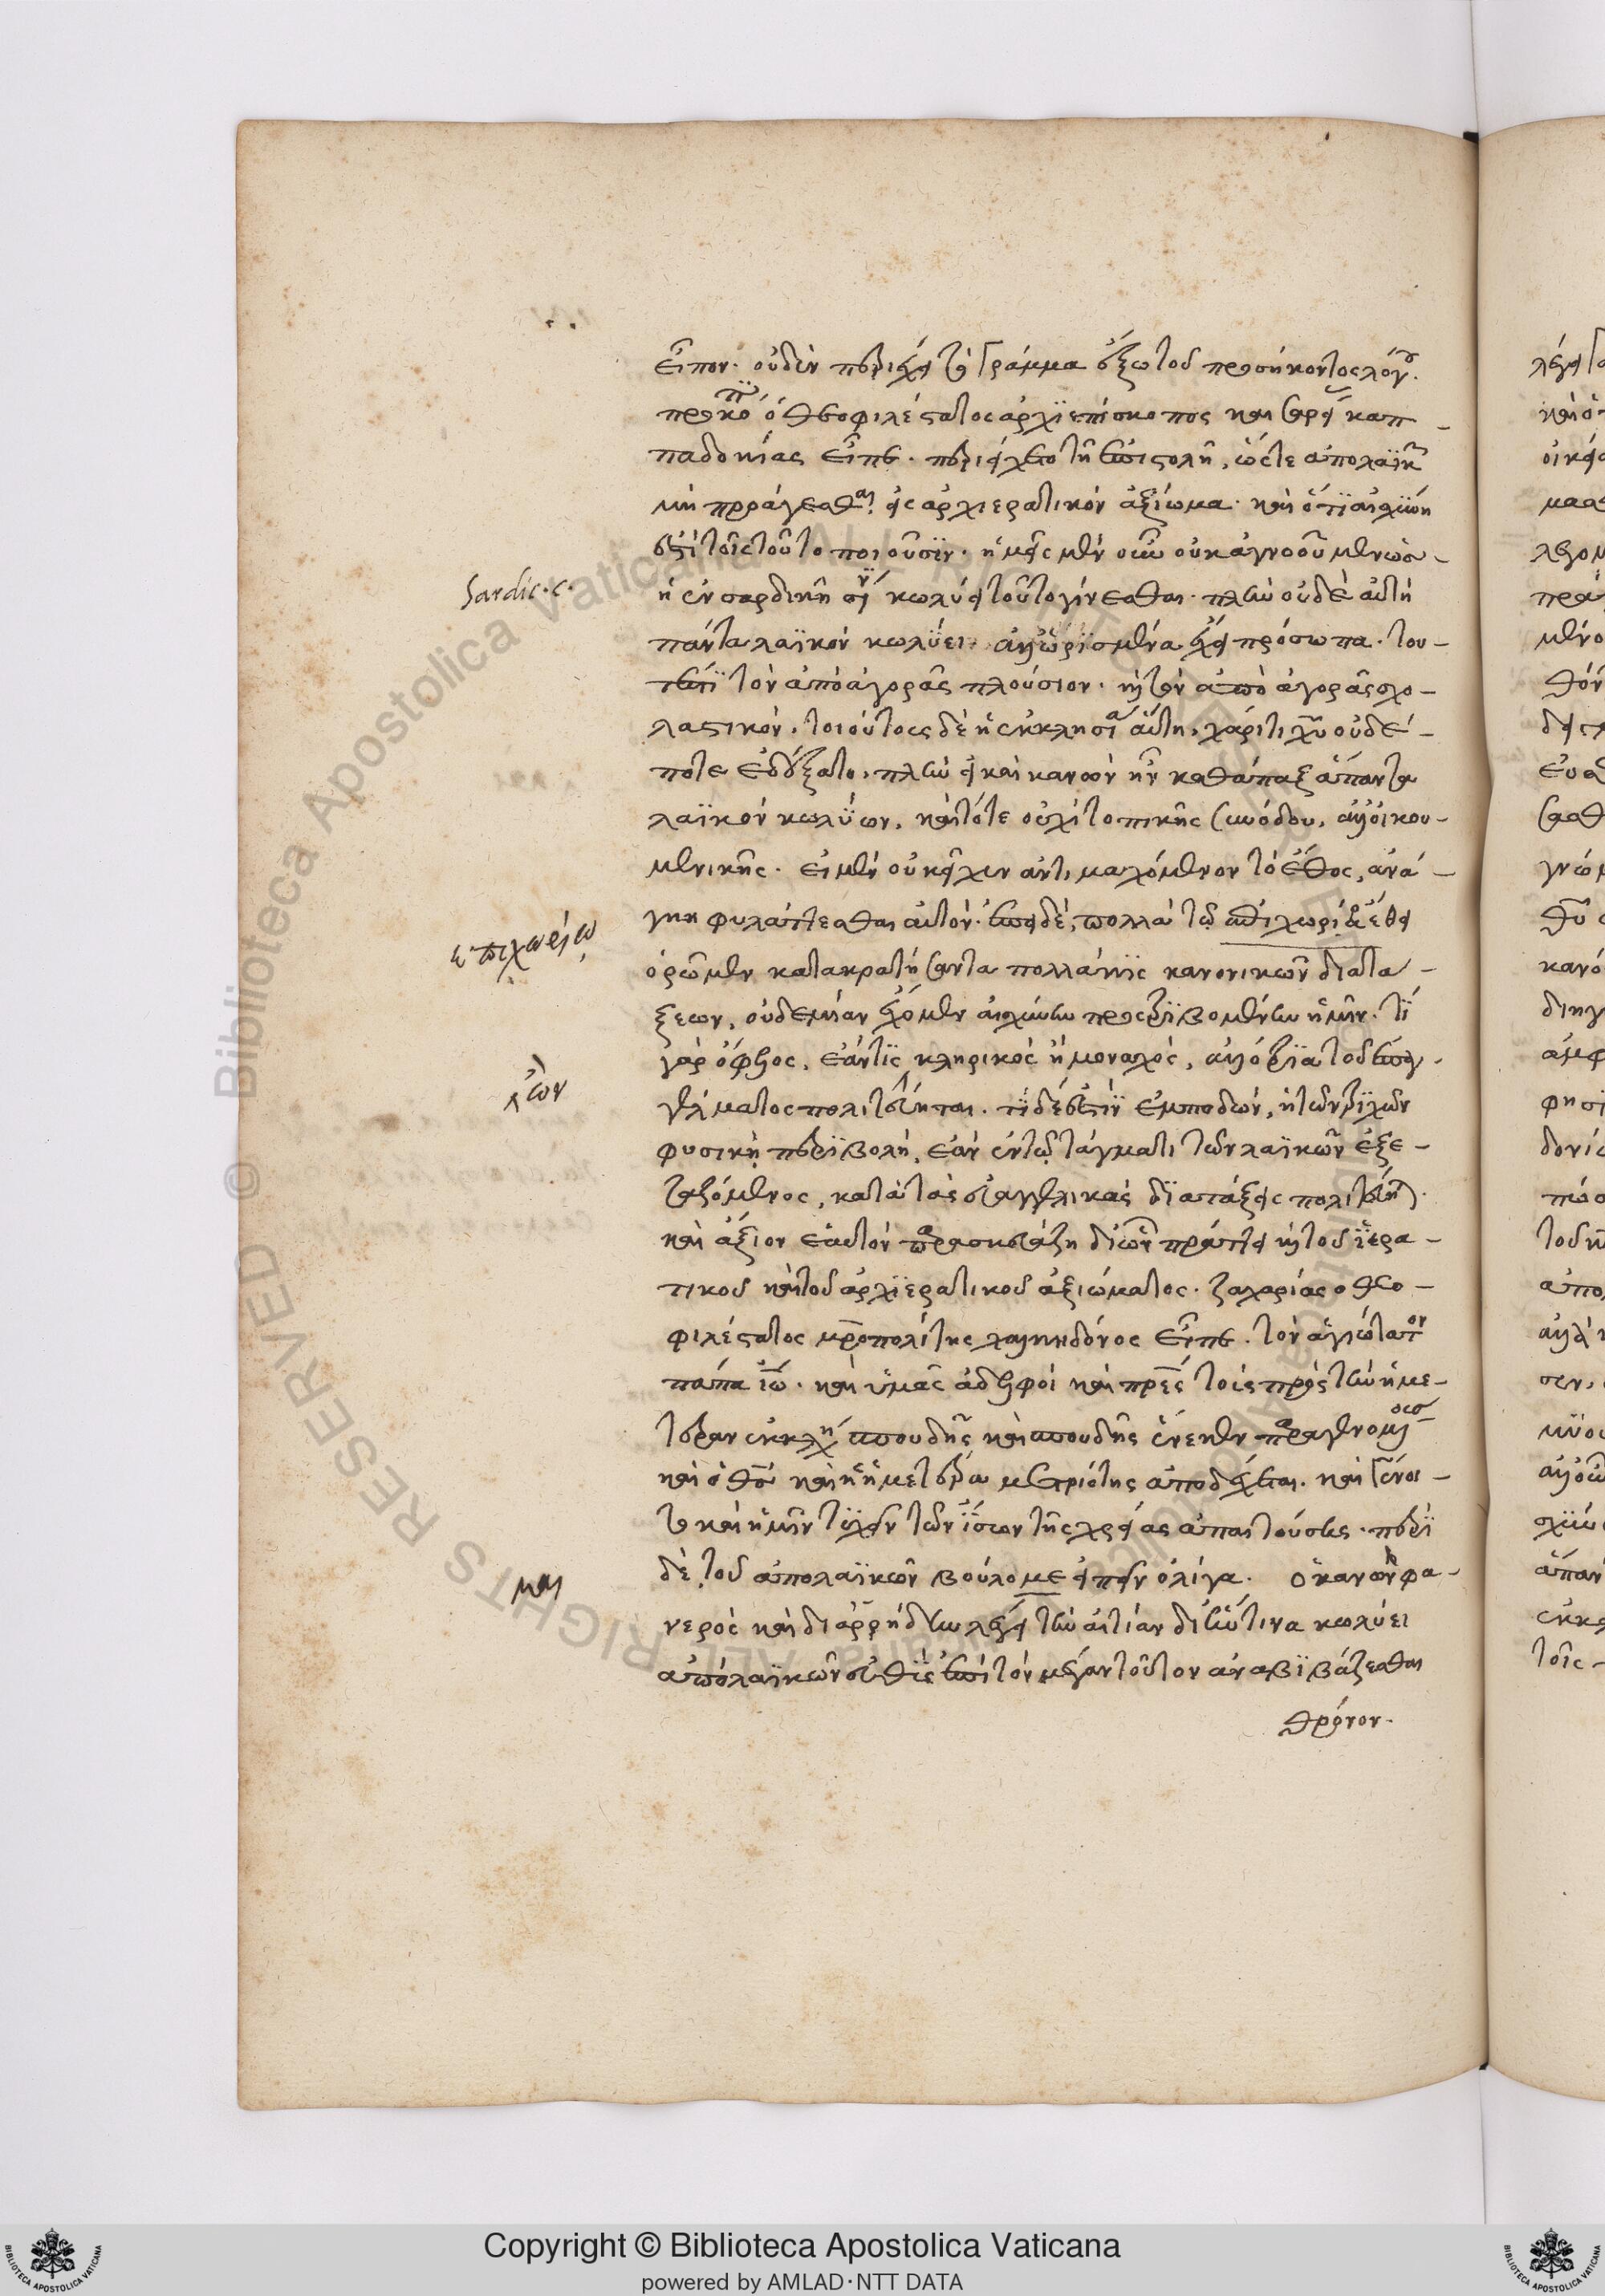 εἶπον· οὐδὲν περιέχει τὸ γράμμα ἔξω τοῦ προσήκοντος λόγου.
προκόπιος ὁ θεοφιλέστατος ἀρχιεπίσκοπος καισαρείας καπ-
παδοκίας εἶπε· περιείχετο τῇ ἐπιστολῇ, ὥστε ἀπολαϊκῶν
μὴ προάγεσθαι εἰς ἀρχιερατικὸν ἀξίωμα· καὶ ὅτι αἰσχύνη
ἐστὶ τοῖς τοῦτο ποιοῦσιν· ἡμεῖς μὲν οὖν οὐκ ἀγνοοῦμεν ὡς
Sardic. c.
ἡ ἐν σαρδικῇ σύνοδος κωλύει τοῦτο γίνεσθαι· πλὴν οὐδὲ αὐτὴ
πάντα λαϊκὸν κωλύει· ἀλλ' ὡρισμένα ἔχει πρόσωπα· του-
τέστι τὸν ἀπὸ ἀγορᾶς πλούσιον· καὶ τὸν ἀπὸ ἀγορᾶς σχο-
λαστικόν· τοιούτους δὲ ἡ ἐκκλησία αὕτη, χάριτι χυ οὐδέ-
ποτε ἐδέξατο· πλὴν εἰ καὶ κανὼν ἦν καθάπαξ ἅπαντα
λαϊκὸν κωλύων, καὶ τότε οὐχὶ τοπικῆς συνόδου, ἀλλ' οἰκου-
μενικῆς· εἰ μὲν οὐκ εἶχεν ἀντιμαχόμενον τὸ ἔθος, ἀνά-
γκη φυλάττεσθαι αὐτόν· ἐπεὶ δὲ πολλὰ τῷ ἐπιχωρίᾳ ἔθει
ἐπιχωρίῳ
ὁρῶμεν κατακρατήσαντα πολλάκις κανονικῶν διατά-
ξεων, οὐδεμίαν ἔχομεν αἰσχύνην προστριβομένην ἡμῖν· τί
γὰρ ὄφελος, ἐάν τις κληρικὸς ἢ μοναχὸς, ἀλλότρια τοῦ ἐπαγ-
ων
γέλματος πολιτεύηται· τί δέ ἐστιν ἐμποδὼν, ἡ τῶν τριχῶν
φυσικὴ περιβολὴ, ἐὰν ἐν τῷ τάγματι τῶν λαϊκῶν ἐξε-
ταζόμενος, κατὰ τὰς εὐαγγελικὰς διατάξεις πολιτεύηται.
καὶ ἄξιον ἑαυτὸν παρασκευάζη δι' ὧν πράττει καὶ τοῦ ἱερα-
τικοῦ καὶ τοῦ ἀρχιερατικοῦ ἀξιώματος· ζαχαρίας ὁ θεο-
φιλέστατος μροπολίτης χαλκηδόνος εἶπε· τὸν ἁγιώτατον
πάπα ἰω· καὶ ὑμᾶς ἀδελφοὶ καὶ πρες τοῖς πρὸς τὴν ἡμε-
τέραν ἐκκλη σπουδῆς καὶ σπουδῆς ἕνεκεν παραγενομένους
καὶ ὁ θς καὶ ἡ ἡμετέρα μετριότης ἀποδέχεται· καὶ γένοι-
το καὶ ἡμῖν τυχεῖν τῶν ἴσων τῆς χρείας ἀπαιτούσης· περὶ
δὲ τοῦ ἀπολαϊκῶν βούλομε εἰπεῖν ὀλίγα. ὁ κανὼν φα-
μαι
νερὸς καὶ διαρρήδην λέγει τὴν αἰτίαν δι' ἥντινα κωλύει
ἀπὸ λαϊκῶν εὐθὺς ἐπὶ τὸν μέγαν τοῦτον ἀναβιβάζεσθαι
θρόνον·
Copyright © Biblioteca Apostolica Vaticana
powered by AMLAD·NTT DATA